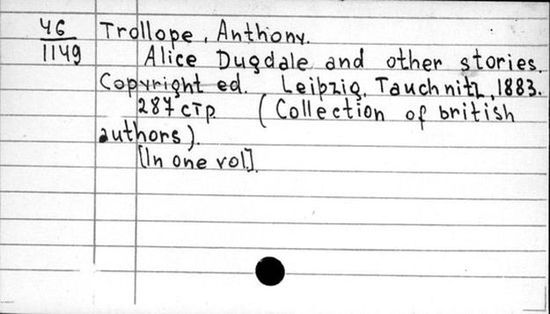 46 Trollope, Anthony.
1149 Alice Dugdale and other stories.
Copyright ed. Leipzig, Tauchnitz, 1883.
287 стр. (Collection of british
authors).
[In one vol].